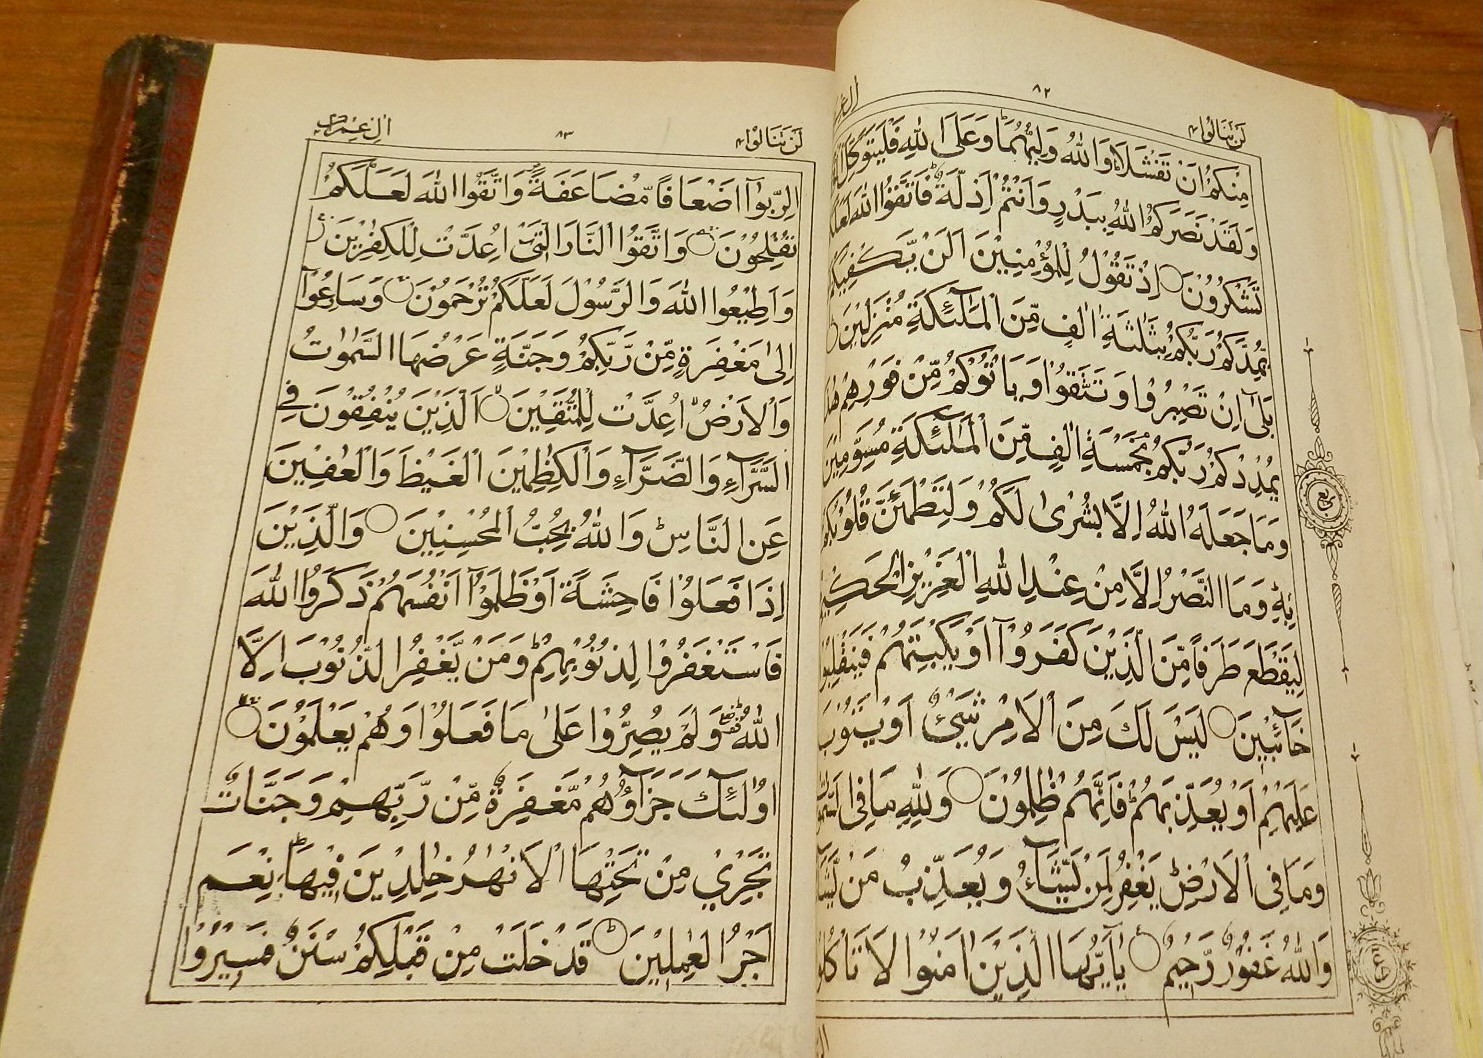 لَنْ تَنَالُوا ٤
٨٢
مِنْكُمْ اَنْ تَفْشَلَاۙ وَاللّٰهُ وَلِيُّهُمَاؕ وَعَلَى اللّٰهِ فَلْيَتَوَكَّلِ
وَلَقَدْ نَصَرَكُمُ اللّٰهُ بِبَدْرٍ وَّاَنْتُمْ اَذِلَّةٌۚ فَاتَّقُوا اللّٰهَ
تَشْكُرُوْنَ۝ اِذْ تَقُوْلُ لِلْمُؤْمِنِيْنَ اَلَنْ يَّكْفِيَكُمْ
يُمِدَّكُمْ رَبُّكُمْ بِثَلٰثَةِ اٰلٰفٍ مِّنَ الْمَلٰٓئِكَةِ مُنْزَلِيْنَ
بَلٰٓى اِنْ تَصْبِرُوْا وَتَتَّقُوْا وَيَاْتُوْكُمْ مِّنْ فَوْرِهِمْ
يُمْدِدْكُمْ رَبُّكُمْ بِخَمْسَةِ اٰلٰفٍ مِّنَ الْمَلٰٓئِكَةِ مُسَوِّمِيْنَ
وَمَا جَعَلَهُ اللّٰهُ اِلَّا بُشْرٰى لَكُمْ وَلِتَطْمَئِنَّ قُلُوْبُكُمْ
بِهٖؕ وَمَا النَّصْرُ اِلَّا مِنْ عِنْدِ اللّٰهِ الْعَزِيْزِ الْحَكِيْمِ
لِيَقْطَعَ طَرَفًا مِّنَ الَّذِيْنَ كَفَرُوْٓا اَوْ يَكْبِتَهُمْ فَيَنْقَلِبُوْا
خَآئِبِيْنَ۝ لَيْسَ لَكَ مِنَ الْاَمْرِ شَيْءٌ اَوْ يَتُوْبَ
عَلَيْهِمْ اَوْ يُعَذِّبَهُمْ فَاِنَّهُمْ ظٰلِمُوْنَ۝ وَلِلّٰهِ مَا فِى السَّمٰوٰتِ
وَمَا فِى الْاَرْضِؕ يَغْفِرُ لِمَنْ يَّشَآءُ وَيُعَذِّبُ مَنْ يَّشَآءُ
وَاللّٰهُ غَفُوْرٌ رَّحِيْمٌ۝ يٰٓاَيُّهَا الَّذِيْنَ اٰمَنُوْا لَا تَاْكُلُوا
ربع
لَنْ تَنَالُوا ٤
٨٣
اٰلِ عِمْرٰن ٣
الرِّبٰٓوا اَضْعَافًا مُّضٰعَفَةًۖ وَاتَّقُوا اللّٰهَ لَعَلَّكُمْ
تُفْلِحُوْنَ۝ وَاتَّقُوا النَّارَ الَّتِيْٓ اُعِدَّتْ لِلْكٰفِرِيْنَ۝
وَاَطِيْعُوا اللّٰهَ وَالرَّسُوْلَ لَعَلَّكُمْ تُرْحَمُوْنَ۝ وَسَارِعُوْٓا
اِلٰى مَغْفِرَةٍ مِّنْ رَّبِّكُمْ وَجَنَّةٍ عَرْضُهَا السَّمٰوٰتُ
وَالْاَرْضُۙ اُعِدَّتْ لِلْمُتَّقِيْنَ۝ الَّذِيْنَ يُنْفِقُوْنَ فِى
السَّرَّآءِ وَالضَّرَّآءِ وَالْكٰظِمِيْنَ الْغَيْظَ وَالْعَافِيْنَ
عَنِ النَّاسِؕ وَاللّٰهُ يُحِبُّ الْمُحْسِنِيْنَ۝ وَالَّذِيْنَ
اِذَا فَعَلُوْا فَاحِشَةً اَوْ ظَلَمُوْٓا اَنْفُسَهُمْ ذَكَرُوا اللّٰهَ
فَاسْتَغْفَرُوْا لِذُنُوْبِهِمْؕ وَمَنْ يَّغْفِرُ الذُّنُوْبَ اِلَّا
اللّٰهُ وَلَمْ يُصِرُّوْا عَلٰى مَا فَعَلُوْا وَهُمْ يَعْلَمُوْنَ۝
اُولٰٓئِكَ جَزَآؤُهُمْ مَّغْفِرَةٌ مِّنْ رَّبِّهِمْ وَجَنّٰتٌ
تَجْرِيْ مِنْ تَحْتِهَا الْاَنْهٰرُ خٰلِدِيْنَ فِيْهَاؕ وَنِعْمَ
اَجْرُ الْعٰمِلِيْنَ۝ قَدْ خَلَتْ مِنْ قَبْلِكُمْ سُنَنٌ فَسِيْرُوْا